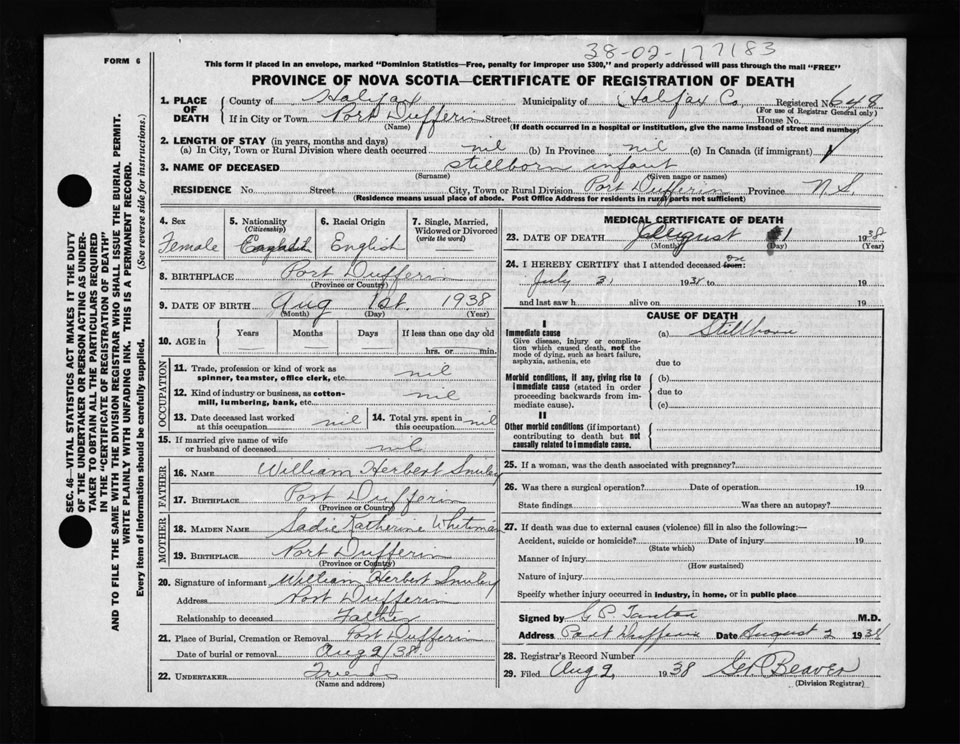 38-02-177183
FORM 6
This form if placed in an envelope, marked "Dominion Statistics—Free, penalty for improper use $300," and properly addressed will pass through the mail "FREE"
PROVINCE OF NOVA SCOTIA—CERTIFICATE OF REGISTRATION OF DEATH
1. PLACE OF DEATH County of Halifax Municipality of Halifax Co. Registered No. 648
(For use of Registrar General only)
If in City or Town Port Dufferin Street House No.
(Name) (If death occurred in a hospital or institution, give the name instead of street and number)
2. LENGTH OF STAY (in years, months and days)
(a) In City, Town or Rural Division where death occurred nil (b) In Province nil (c) In Canada (if immigrant)
3. NAME OF DECEASED stillborn infant
(Surname) (Given name or names)
RESIDENCE No. Street City, Town or Rural Division Port Dufferin Province N.S.
(Residence means usual place of abode. Post Office Address for residents in rural parts not sufficient)
4. Sex 5. Nationality (Citizenship) 6. Racial Origin 7. Single, Married, Widowed or Divorced (write the word)
Female English English
8. BIRTHPLACE Port Dufferin
(Province or Country)
9. DATE OF BIRTH Aug 1st. 1938
(Month) (Day) (Year)
10. AGE in Years Months Days If less than one day old
hrs. or min.
OCCUPATION
11. Trade, profession or kind of work as spinner, teamster, office clerk, etc. nil
12. Kind of industry or business, as cotton-mill, lumbering, bank, etc. nil
13. Date deceased last worked at this occupation nil 14. Total yrs. spent in this occupation nil
15. If married give name of wife or husband of deceased nil
FATHER
16. NAME William Herbert Smiley
17. BIRTHPLACE Port Dufferin
(Province or Country)
MOTHER
18. MAIDEN NAME Sadie Katherine Whitman
19. BIRTHPLACE Port Dufferin
(Province or Country)
20. Signature of informant William Herbert Smiley
Address Port Dufferin
Relationship to deceased Father
21. Place of Burial, Cremation or Removal Port Dufferin
Date of burial or removal Aug 2/38.
22. UNDERTAKER Friend
(Name and address)
MEDICAL CERTIFICATE OF DEATH
23. DATE OF DEATH August 1 1938
(Month) (Day) (Year)
24. I HEREBY CERTIFY that I attended deceased from: on
July 31 1938 to 19
and last saw h alive on 19
CAUSE OF DEATH
I
Immediate cause (a) Stillborn
Give disease, injury or complication which caused death, not the mode of dying, such as heart failure, asphyxia, asthenia, etc
due to
Morbid conditions, if any, giving rise to immediate cause (stated in order proceeding backwards from immediate cause). (b)
due to
(c)
II
Other morbid conditions (if important) contributing to death but not causally related to immediate cause.
25. If a woman, was the death associated with pregnancy?
26. Was there a surgical operation? Date of operation 19
State findings Was there an autopsy?
27. If death was due to external causes (violence) fill in also the following:—
Accident, suicide or homicide? Date of injury 19
(State which)
Manner of injury
(How sustained)
Nature of injury
Specify whether injury occurred in industry, in home, or in public place
Signed by M.D.
Address Port Dufferin Date August 2 1938
28. Registrar's Record Number
29. Filed Aug 2, 1938 Beaver
(Division Registrar)
SEC. 46—VITAL STATISTICS ACT MAKES IT THE DUTY
OF THE UNDERTAKER OR PERSON ACTING AS UNDER-
TAKER TO OBTAIN ALL THE PARTICULARS REQUIRED
IN THE "CERTIFICATE OF REGISTRATION OF DEATH"
AND TO FILE THE SAME WITH THE DIVISION REGISTRAR WHO SHALL ISSUE THE BURIAL PERMIT.
WRITE PLAINLY WITH UNFADING INK. THIS IS A PERMANENT RECORD.
Every item of information should be carefully supplied.
(See reverse side for instructions.)